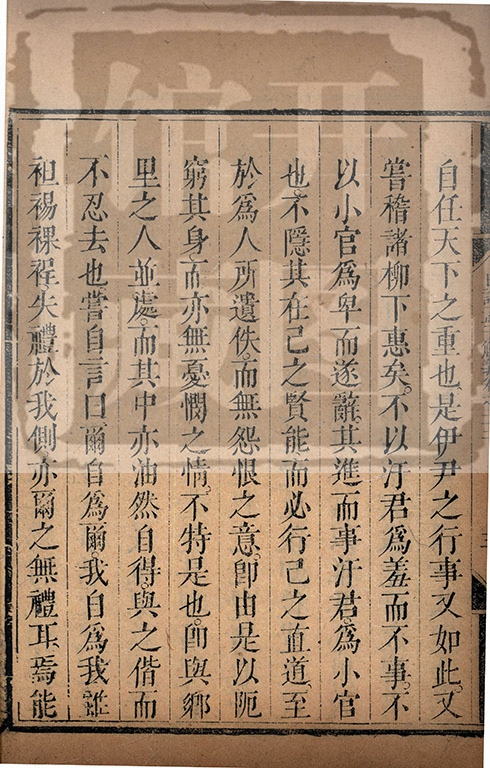 自任天下之重也是伊尹之行事又如此。又
嘗稽諸柳下惠矣。不以汙君爲羞而不事。不
以小官爲卑而遂辭其進而事汙君。爲小官
也。不隱其在己之賢能而必行己之直道。至
於爲人所遺佚。而無怨恨之意。卽由是以阨
窮其身。而亦無憂憫之情。不特是也。卽與鄉
里之人並處。而其中亦油然自得。與之偕而
不忍去也嘗自言曰爾自爲爾。我自爲我雖
袒裼裸裎。失禮於我側亦爾之無禮耳。焉能